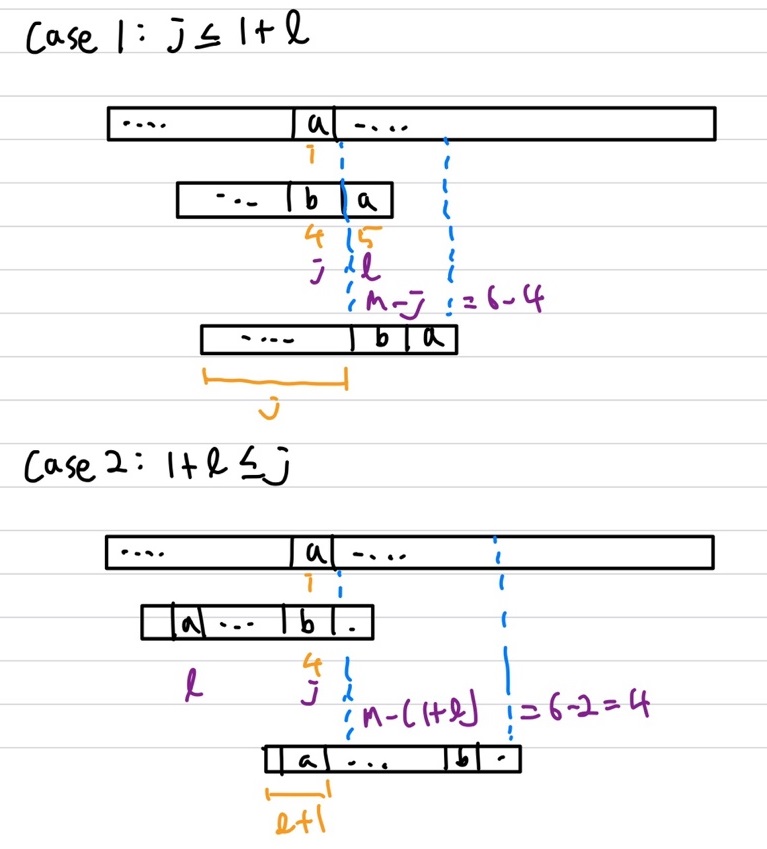 Case 1: j ≤ 1+l
.... a -....
i
-.- b a
4 5
j l
m-j = 6-4
.--- b a
j
Case 2: 1+l ≤ j
.... a -....
i
a ... b .
4
l j
m-(1+l) = 6-2=4
a ... b .
l+1